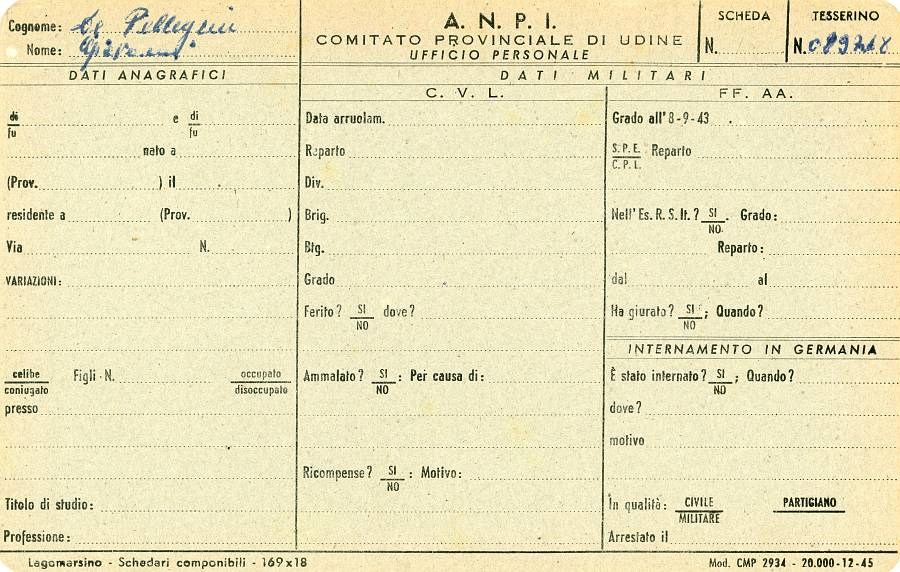 Cognome: De Pellegrin
Nome: Giovanni
A. N. P. I.
COMITATO PROVINCIALE DI UDINE
UFFICIO PERSONALE
SCHEDA
N.
TESSERINO
N.
DATI ANAGRAFICI
di/fu e di/fu
nato a
(Prov. ) il
residente a (Prov. )
Via N.
VARIAZIONI:
celibe/coniugato Figli - N. occupato/disoccupato
presso
Titolo di studio:
Professione:
DATI MILITARI
C. V. L.
Data arruolam.
Reparto
Div.
Brig.
Btg.
Grado
Ferito? SI/NO dove?
Ammalato? SI/NO : Per causa di:
Ricompense? SI/NO : Motivo:
FF. AA.
Grado all'8-9-43 .
S.P.E./C.P.L. Reparto
Nell'Es. R. S. It.? SI/NO. Grado:
Reparto:
dal al
Ha giurato? SI/NO ; Quando?
INTERNAMENTO IN GERMANIA
È stato internato? SI/NO ; Quando?
dove?
motivo
In qualità: CIVILE/MILITARE PARTIGIANO
Arrestato il
Lagomarsino - Schedari componibili - 169x18
Mod. CMP 2934 - 20.000-12-45